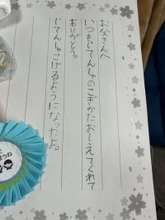 おかあさんへ
いつもじてんしゃのこぎかたおしえてくれて
ありがとう。
じてんしゃこげるようになったよ。